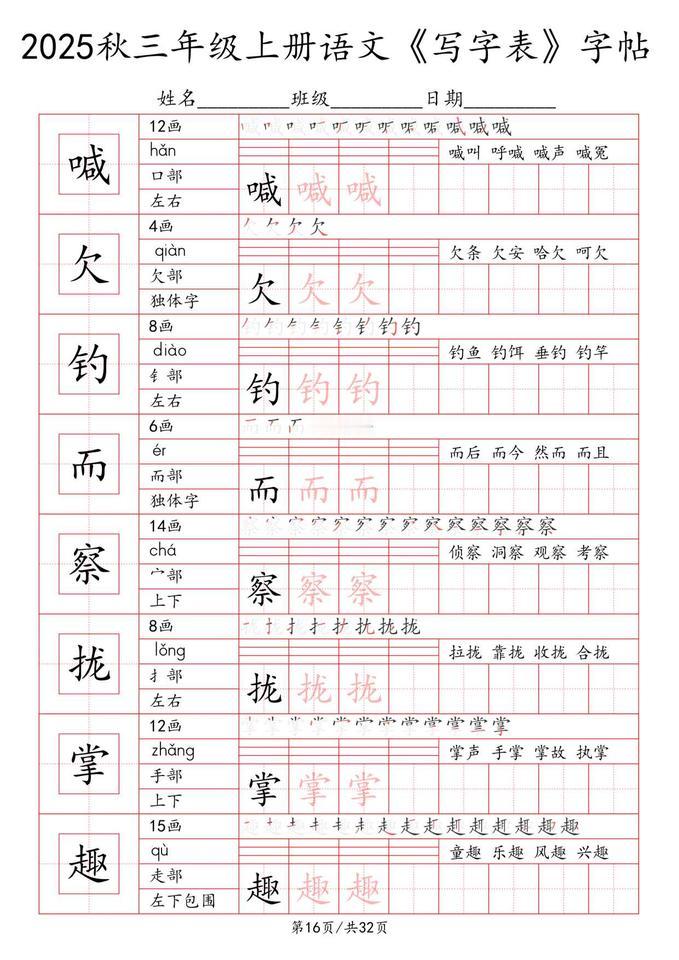 2025秋三年级上册语文《写字表》字帖
姓名________班级________日期________
喊
12画
hǎn
喊叫 呼喊 喊声 喊冤
口部
左右
喊 喊 喊
欠
4画
qiàn
欠条 欠安 哈欠 呵欠
欠部
独体字
欠 欠 欠
钓
8画
diào
钓鱼 钓饵 垂钓 钓竿
钅部
左右
钓 钓 钓
而
6画
ér
而后 而今 然而 而且
而部
独体字
而 而 而
察
14画
chá
侦察 洞察 观察 考察
宀部
上下
察 察 察
拢
8画
lǒng
拉拢 靠拢 收拢 合拢
扌部
左右
拢 拢 拢
掌
12画
zhǎng
掌声 手掌 掌故 执掌
手部
上下
掌 掌 掌
趣
15画
qù
童趣 乐趣 风趣 兴趣
走部
左下包围
趣 趣 趣
第16页/共32页